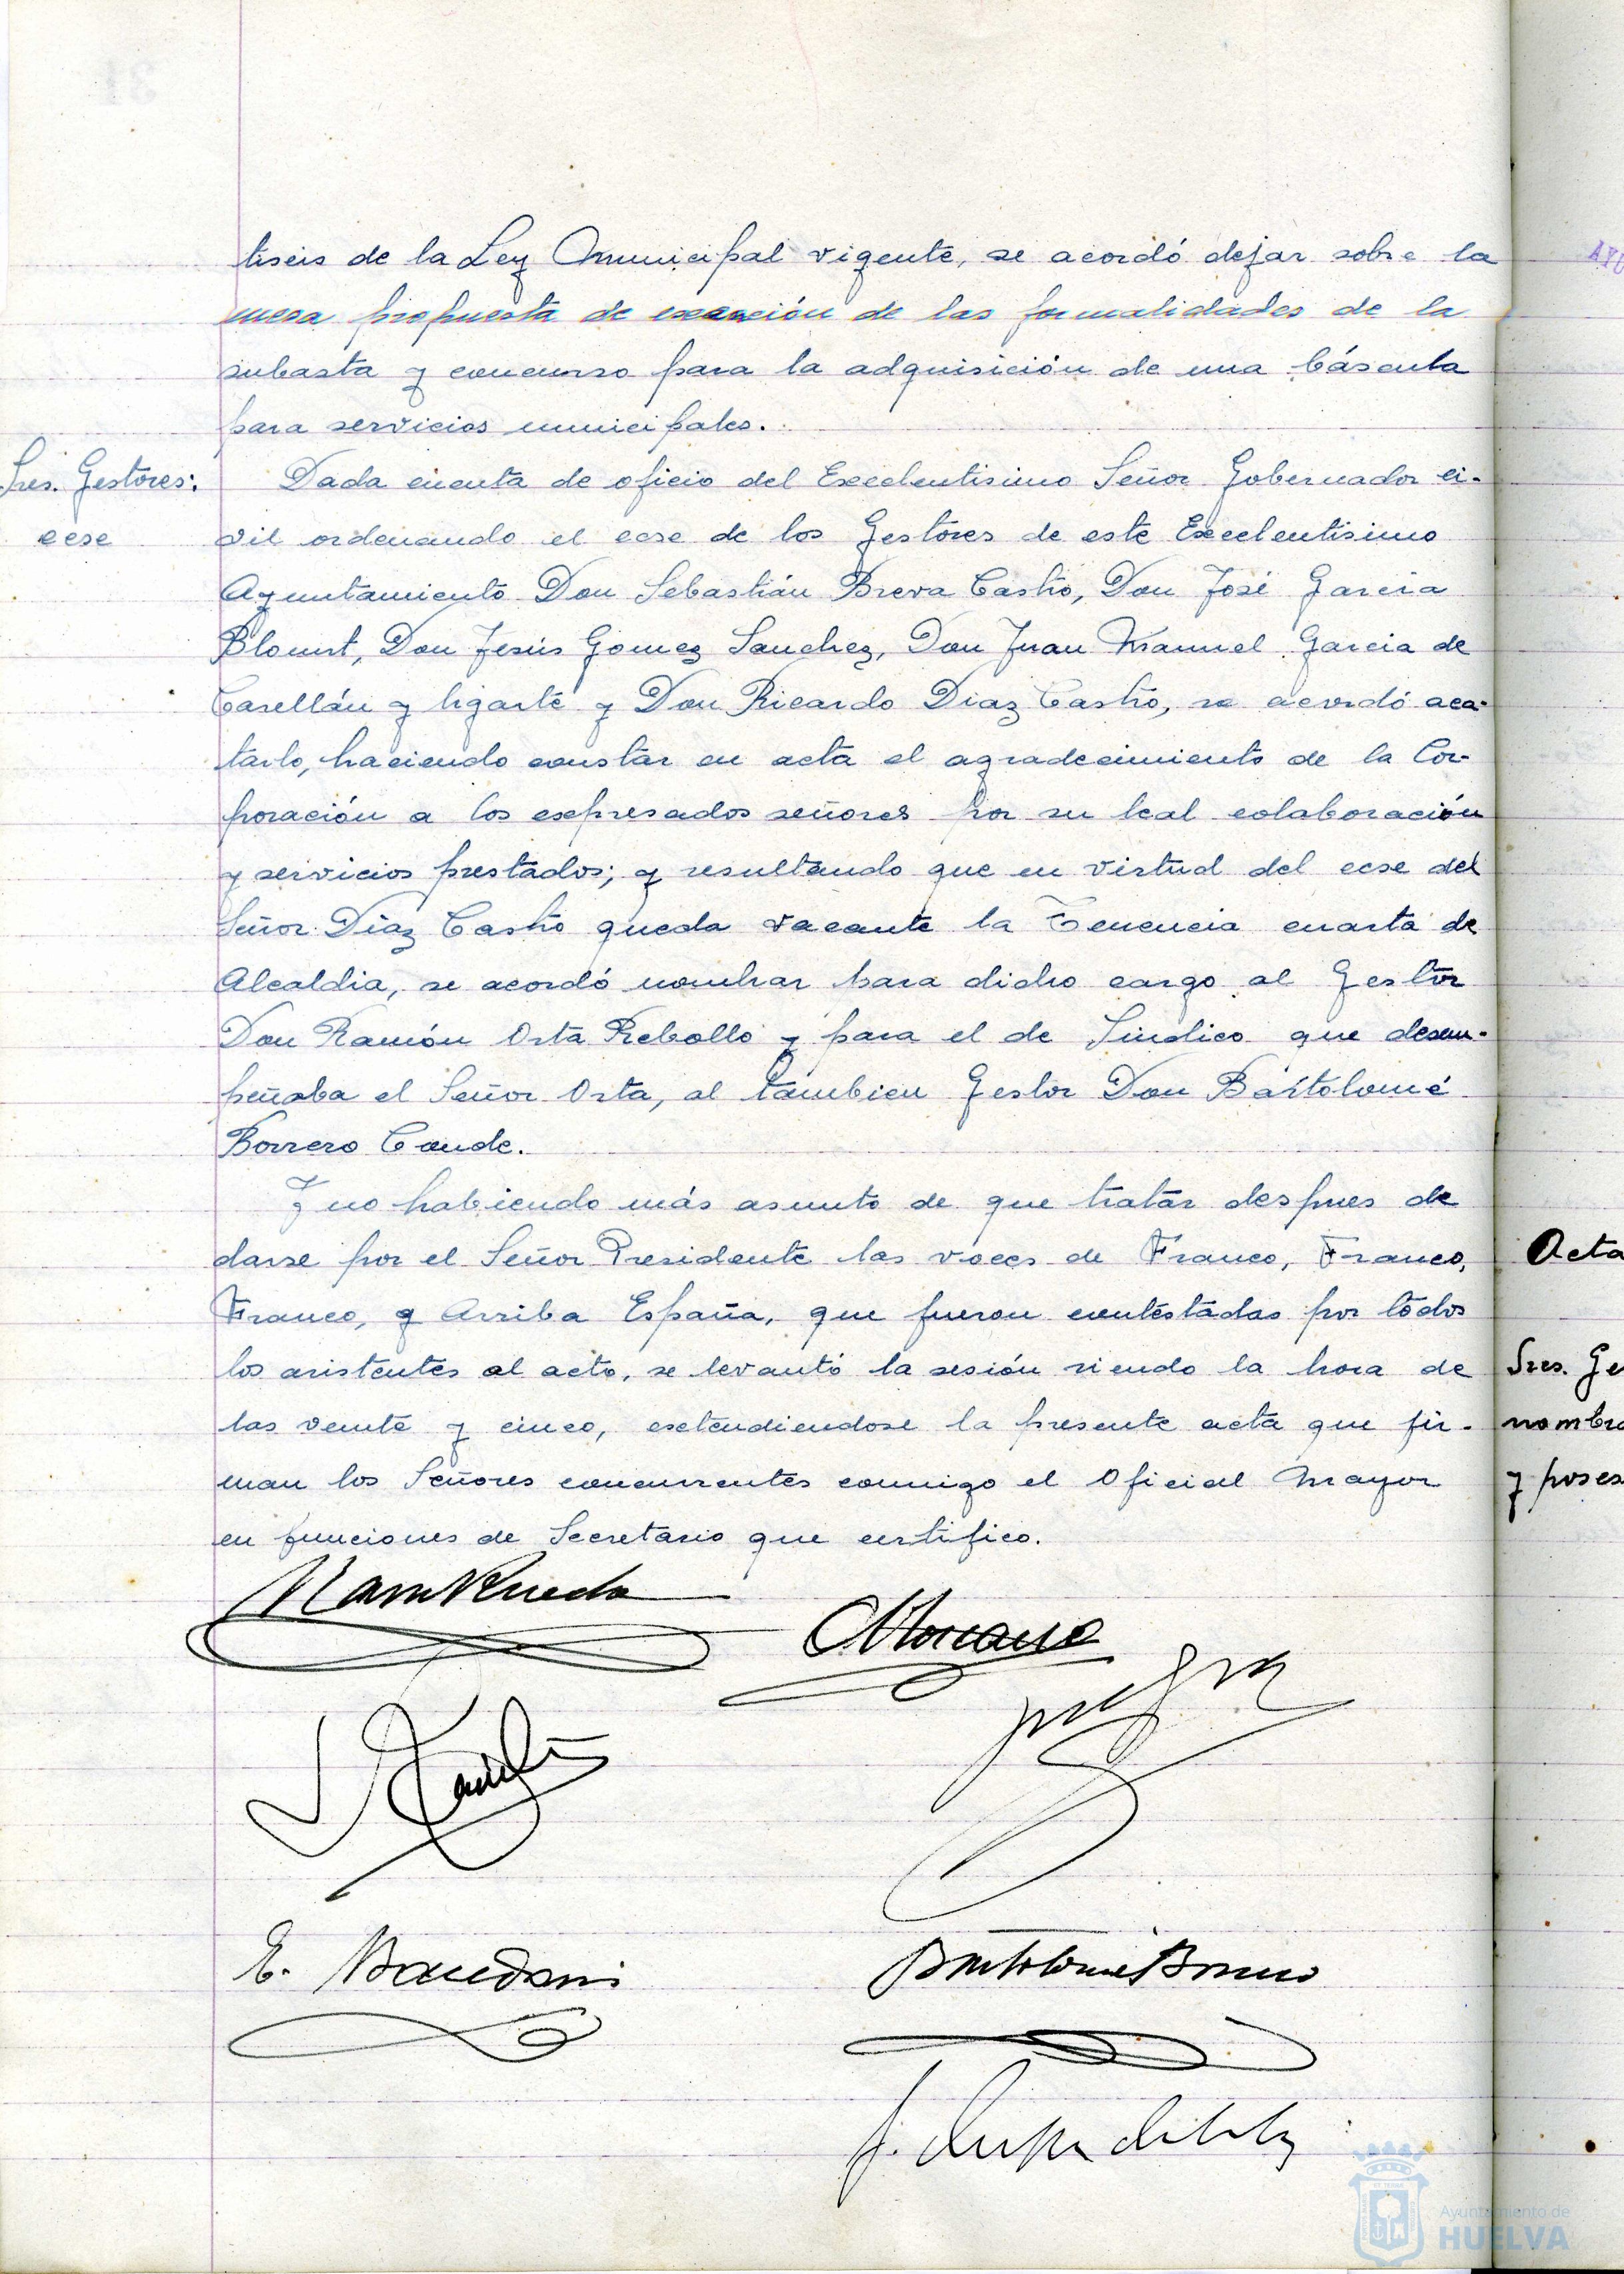 tiseis de la Ley Municipal vigente, se acordó dejar sobre la
mesa propuesta de exención de las formalidades de la
subasta y concurso para la adquisición de una báscula
para servicios municipales.
Sres. Gestores:
cese
Dada cuenta de oficio del Excelentisimo Señor Gobernador ci-
vil ordenando el cese de los Gestores de este Excelentisimo
Ayuntamiento Don Sebastián Breva Castro, Don José Garcia
Blount, Don Jesús Gomez Sanchez, Don Juan Manuel Garcia de
Casellán y Ugarte y Don Ricardo Diaz Castro, se acordó aca-
tarlo, haciendo constar en acta el agradecimiento de la Cor-
poración a los expresados señores por su leal colaboración
y servicios prestados; y resultando que en virtud del cese del
Señor Díaz Castro queda vacante la Tenencia cuarta de
Alcaldia, se acordó nombrar para dicho cargo al Gestor
Don Ramón Orta Rebollo y para el de Síndico que desem-
peñaba el Señor Orta, al tambien Gestor Don Bartolomé
Borrero Conde.
Y no habiendo más asunto de que tratar despues de
darse por el Señor Presidente las voces de Franco, Franco,
Franco, y Arriba España, que fueron contestadas por todos
los asistentes al acto, se levantó la sesión siendo la hora de
las veinte y cinco, extendiendose la presente acta que fir-
man los Señores concurrentes conmigo el Oficial Mayor
en funciones de Secretario que certifico.
E.
Bartolomé Borrero
J.
AYU
Acta
Sres. Ge
nombra
y poses
Ayuntamiento de
HUELVA
31